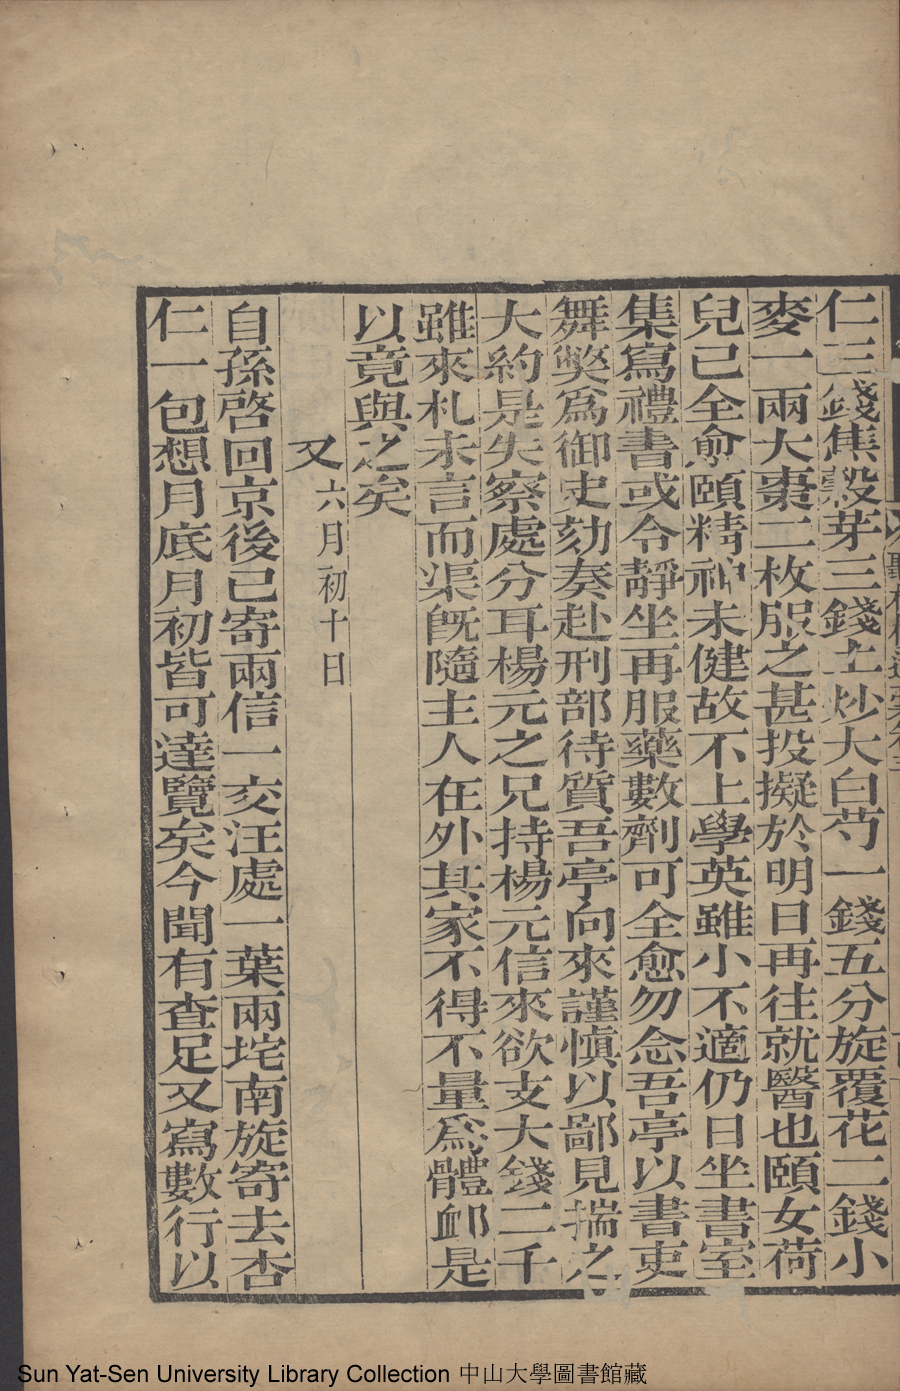 仁三錢焦穀芽三錢土炒大白芍一錢五分旋覆花二錢小
麥一兩大棗二枚服之甚投擬於明日再往就醫也頤女荷
兒已全愈頤精神未健故不上學英雖小不適仍日坐書室
集寫禮書或令靜坐再服藥數劑可全愈勿念吾亭以書吏
舞獘爲御史劾奏赴刑部待質吾亭向來謹慎以鄙見揣之
大約是失察處分耳楊元之兄持楊元信來欲支大錢二千
雖來札未言而渠旣隨主人在外其家不得不量爲體卹是
以竟與之矣
又 六月初十日
自孫啓回京後已寄兩信一交汪處一葉兩垞南旋寄去杏
仁一包想月底月初皆可達覽矣今聞有查足又寫數行以
Sun Yat-Sen University Library Collection 中山大學圖書館藏